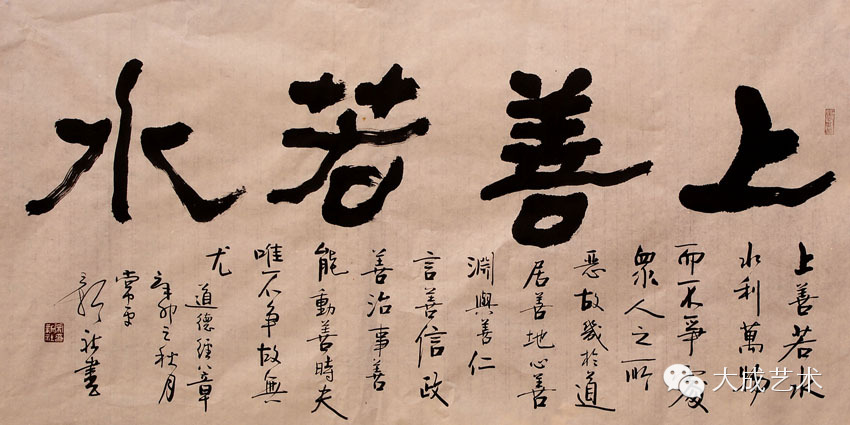 上善若水
上善若水
水利萬物
而不爭處
衆人之所
惡故幾於道
居善地心善
淵與善仁
言善信政
善治事善
能動善時夫
唯不争故無
尤
道德經八章
辛卯之秋月
書
大成艺术